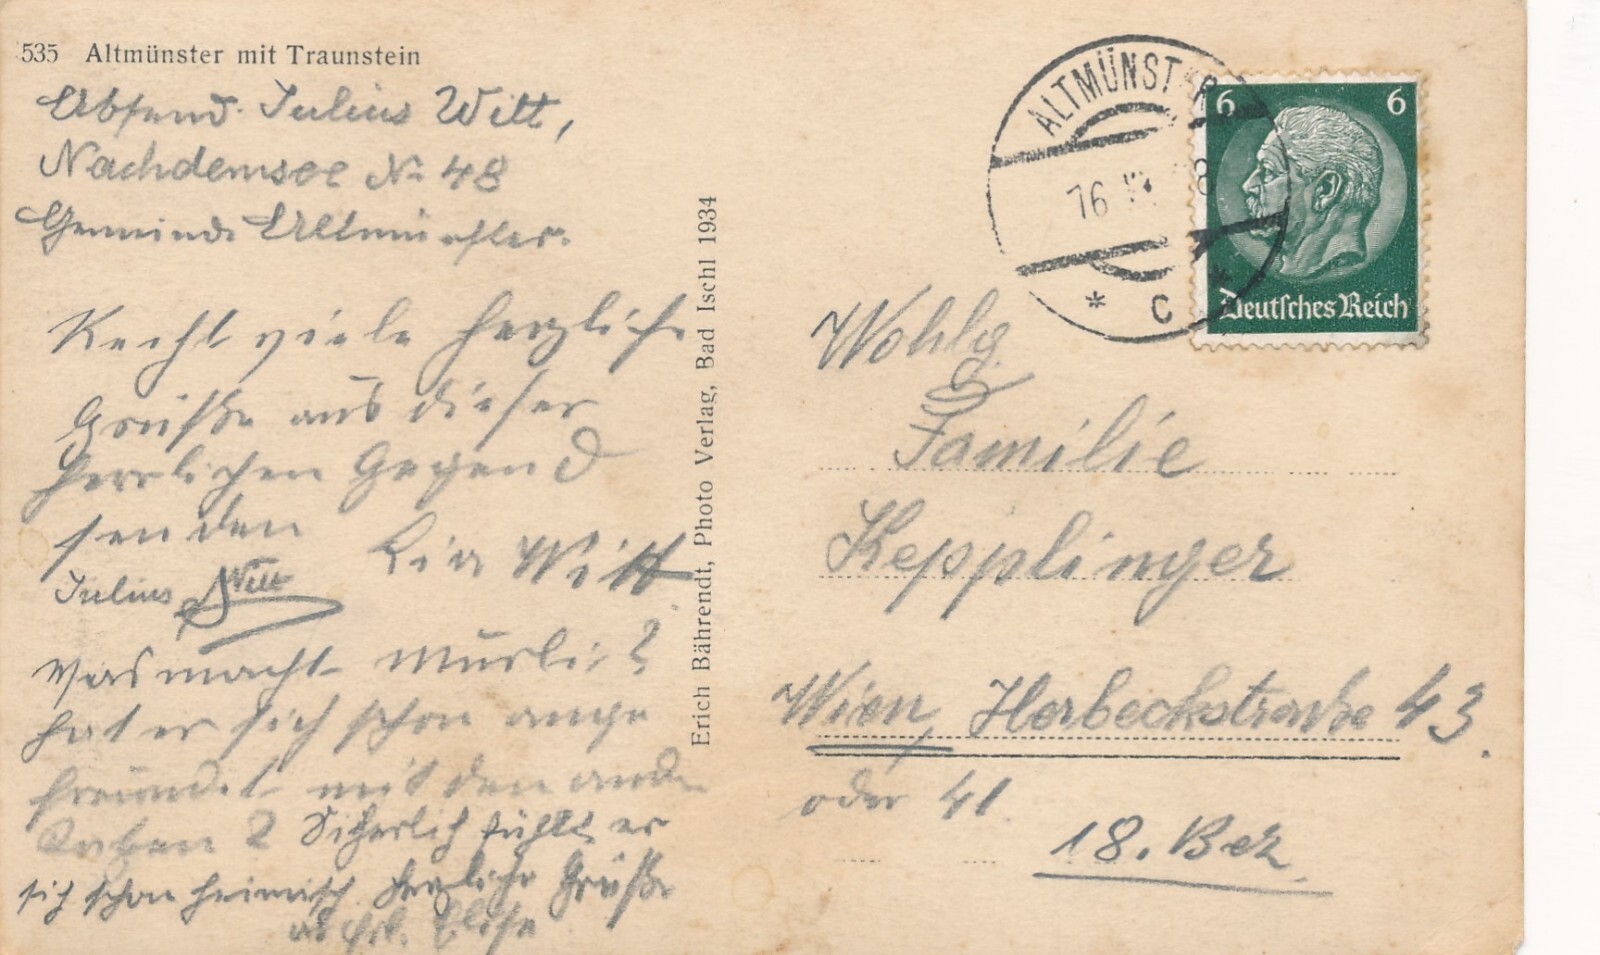 535 Altmünster mit Traunstein
Absend. Julius Witt,
Nachdemsee No 48
Gemeinde Altmünster.
Recht viele herzliche
Grüße aus dieser
herrlichen Gegend
senden
Julius Witt
Lia Witt
Was macht Murli?
hat er sich schon ange
freundet mit den andr.
Katzen? Sicherlich fühlt er
sich schon heimisch. Herzliche Grüße
an Frl. Elise
Erich Bährendt, Photo Verlag, Bad Ischl 1934
ALTMÜNSTER
16
8
* C *
6 6
Deutsches Reich
Wohlg.
Familie
Kepplinger
Wien, Herbeckstraße 43.
oder 41.
18. Bez.